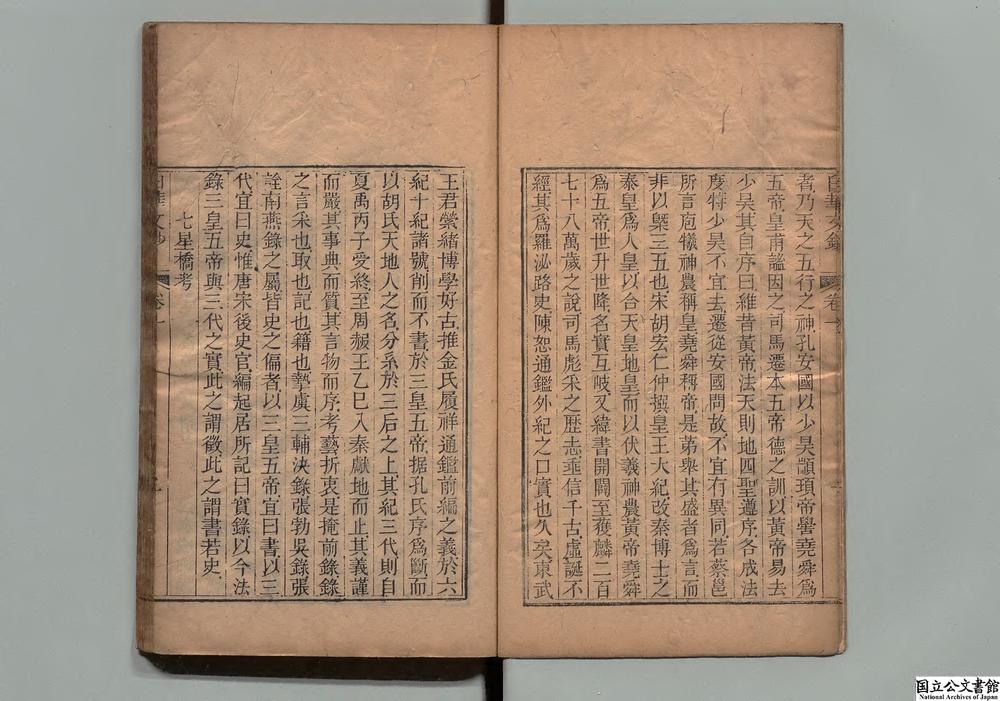 者乃天之五行之神孔安國以少昊顓頊帝嚳堯舜爲
五帝皇甫謐因之司馬遷本五帝德之訓以黃帝易去
少昊其自序曰維昔黃帝法天則地四聖遵序各成法
度特少昊不宜去遷從安國問故不宜有異同若蔡邕
所言庖犧神農稱皇堯舜稱帝是苐舉其盛者爲言而
非以槩三五也宋胡宏仁仲撰皇王大紀改秦博士之
泰皇爲人皇以合天皇地皇而以伏義神農黃帝堯舜
爲五帝世升世降名實互岐又緯書開闢至獲麟二百
七十八萬歲之說司馬彪采之歷志乖信千古虛誕不
經其爲羅泌路史陳恕通鑑外紀之口實也久矣東武
王君縈緒博學好古推金氏履祥通鑑前編之義於六
紀十紀諸號削而不書於三皇五帝据孔氏序爲斷而
以胡氏天地人之名分系於三后之上其紀三代則自
夏禹丙子受終至周赧王乙巳入秦獻地而止其義謹
而嚴其事典而質其言物而序考藝折衷是掩前錄錄
之言采也取也記也籍也摯虞三輔決錄張勃吳錄張
詮南燕錄之屬皆史之偏者以三皇五帝宜曰書以三
代宜曰史惟唐宋後史官編起居所記曰實錄以今法
錄三皇五帝與三代之實此之謂徵此之謂書若史
七星橋考
卷一
卷一
国立公文書館
National Archives of Japan